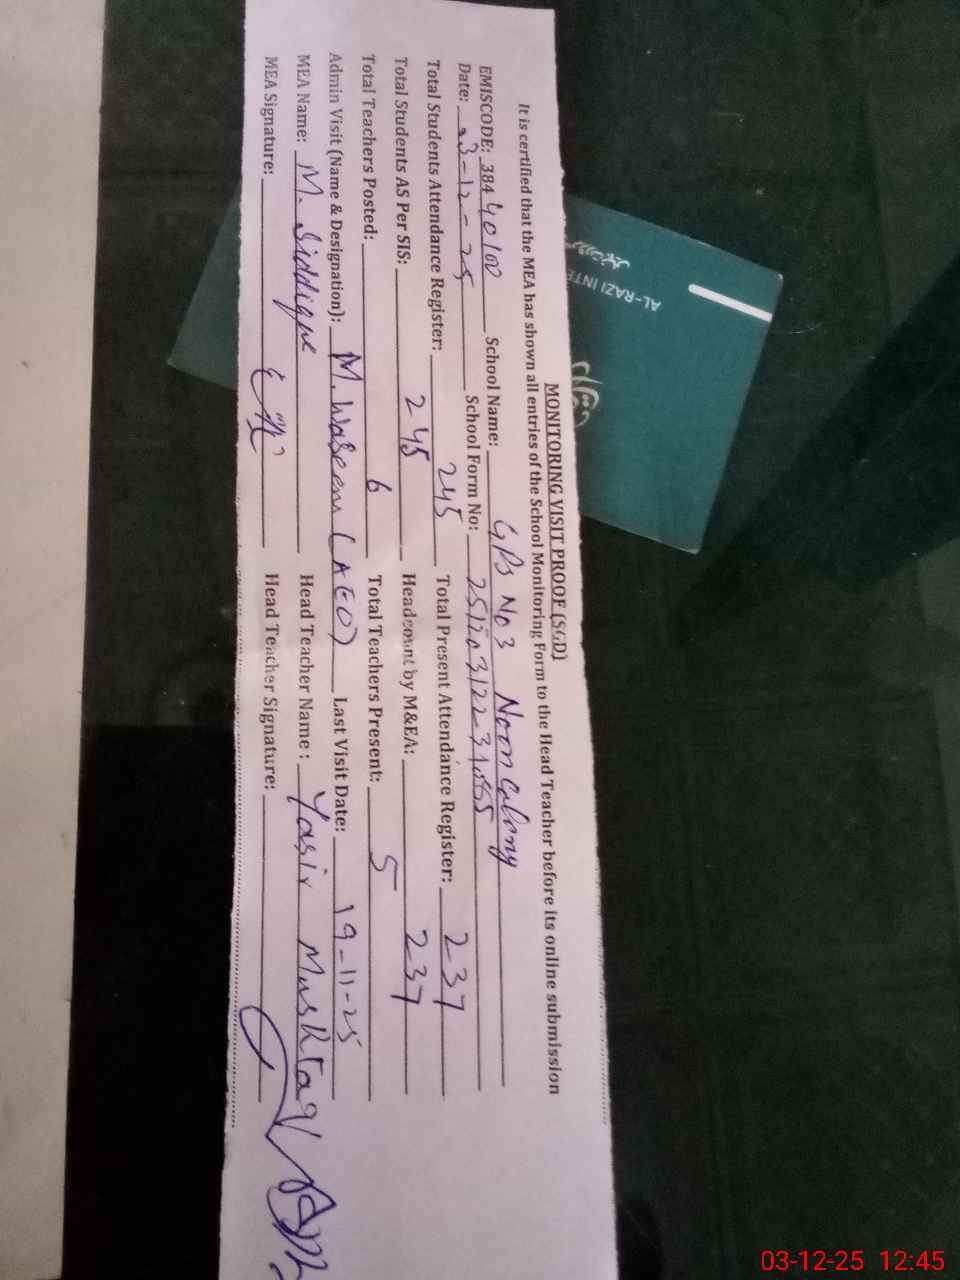 MONITORING VISIT PROOF (SGD)
It is certified that the MEA has shown all entries of the School Monitoring Form to the Head Teacher before its online submission
EMISCODE: 38440100 School Name: GPS No 3 Noon Colony
Date: 03-12-25 School Form No:
Total Students Attendance Register: 245 Total Present Attendance Register: 237
Total Students AS Per SIS: 245 Headcount by M&EA: 237
Total Teachers Posted: 6 Total Teachers Present: 5
Admin Visit (Name & Designation): M. Waseem (AEO) Last Visit Date: 19-11-25
MEA Name: M. Siddique Head Teacher Name : Yasir Mushtaq
MEA Signature: Head Teacher Signature:
AL-RAZI INTE
03-12-25 12:45